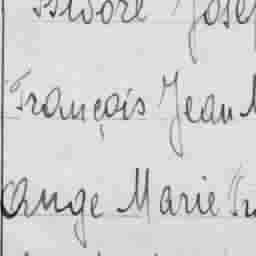 Isidore Jose
François Jean M
Ange Marie Fr